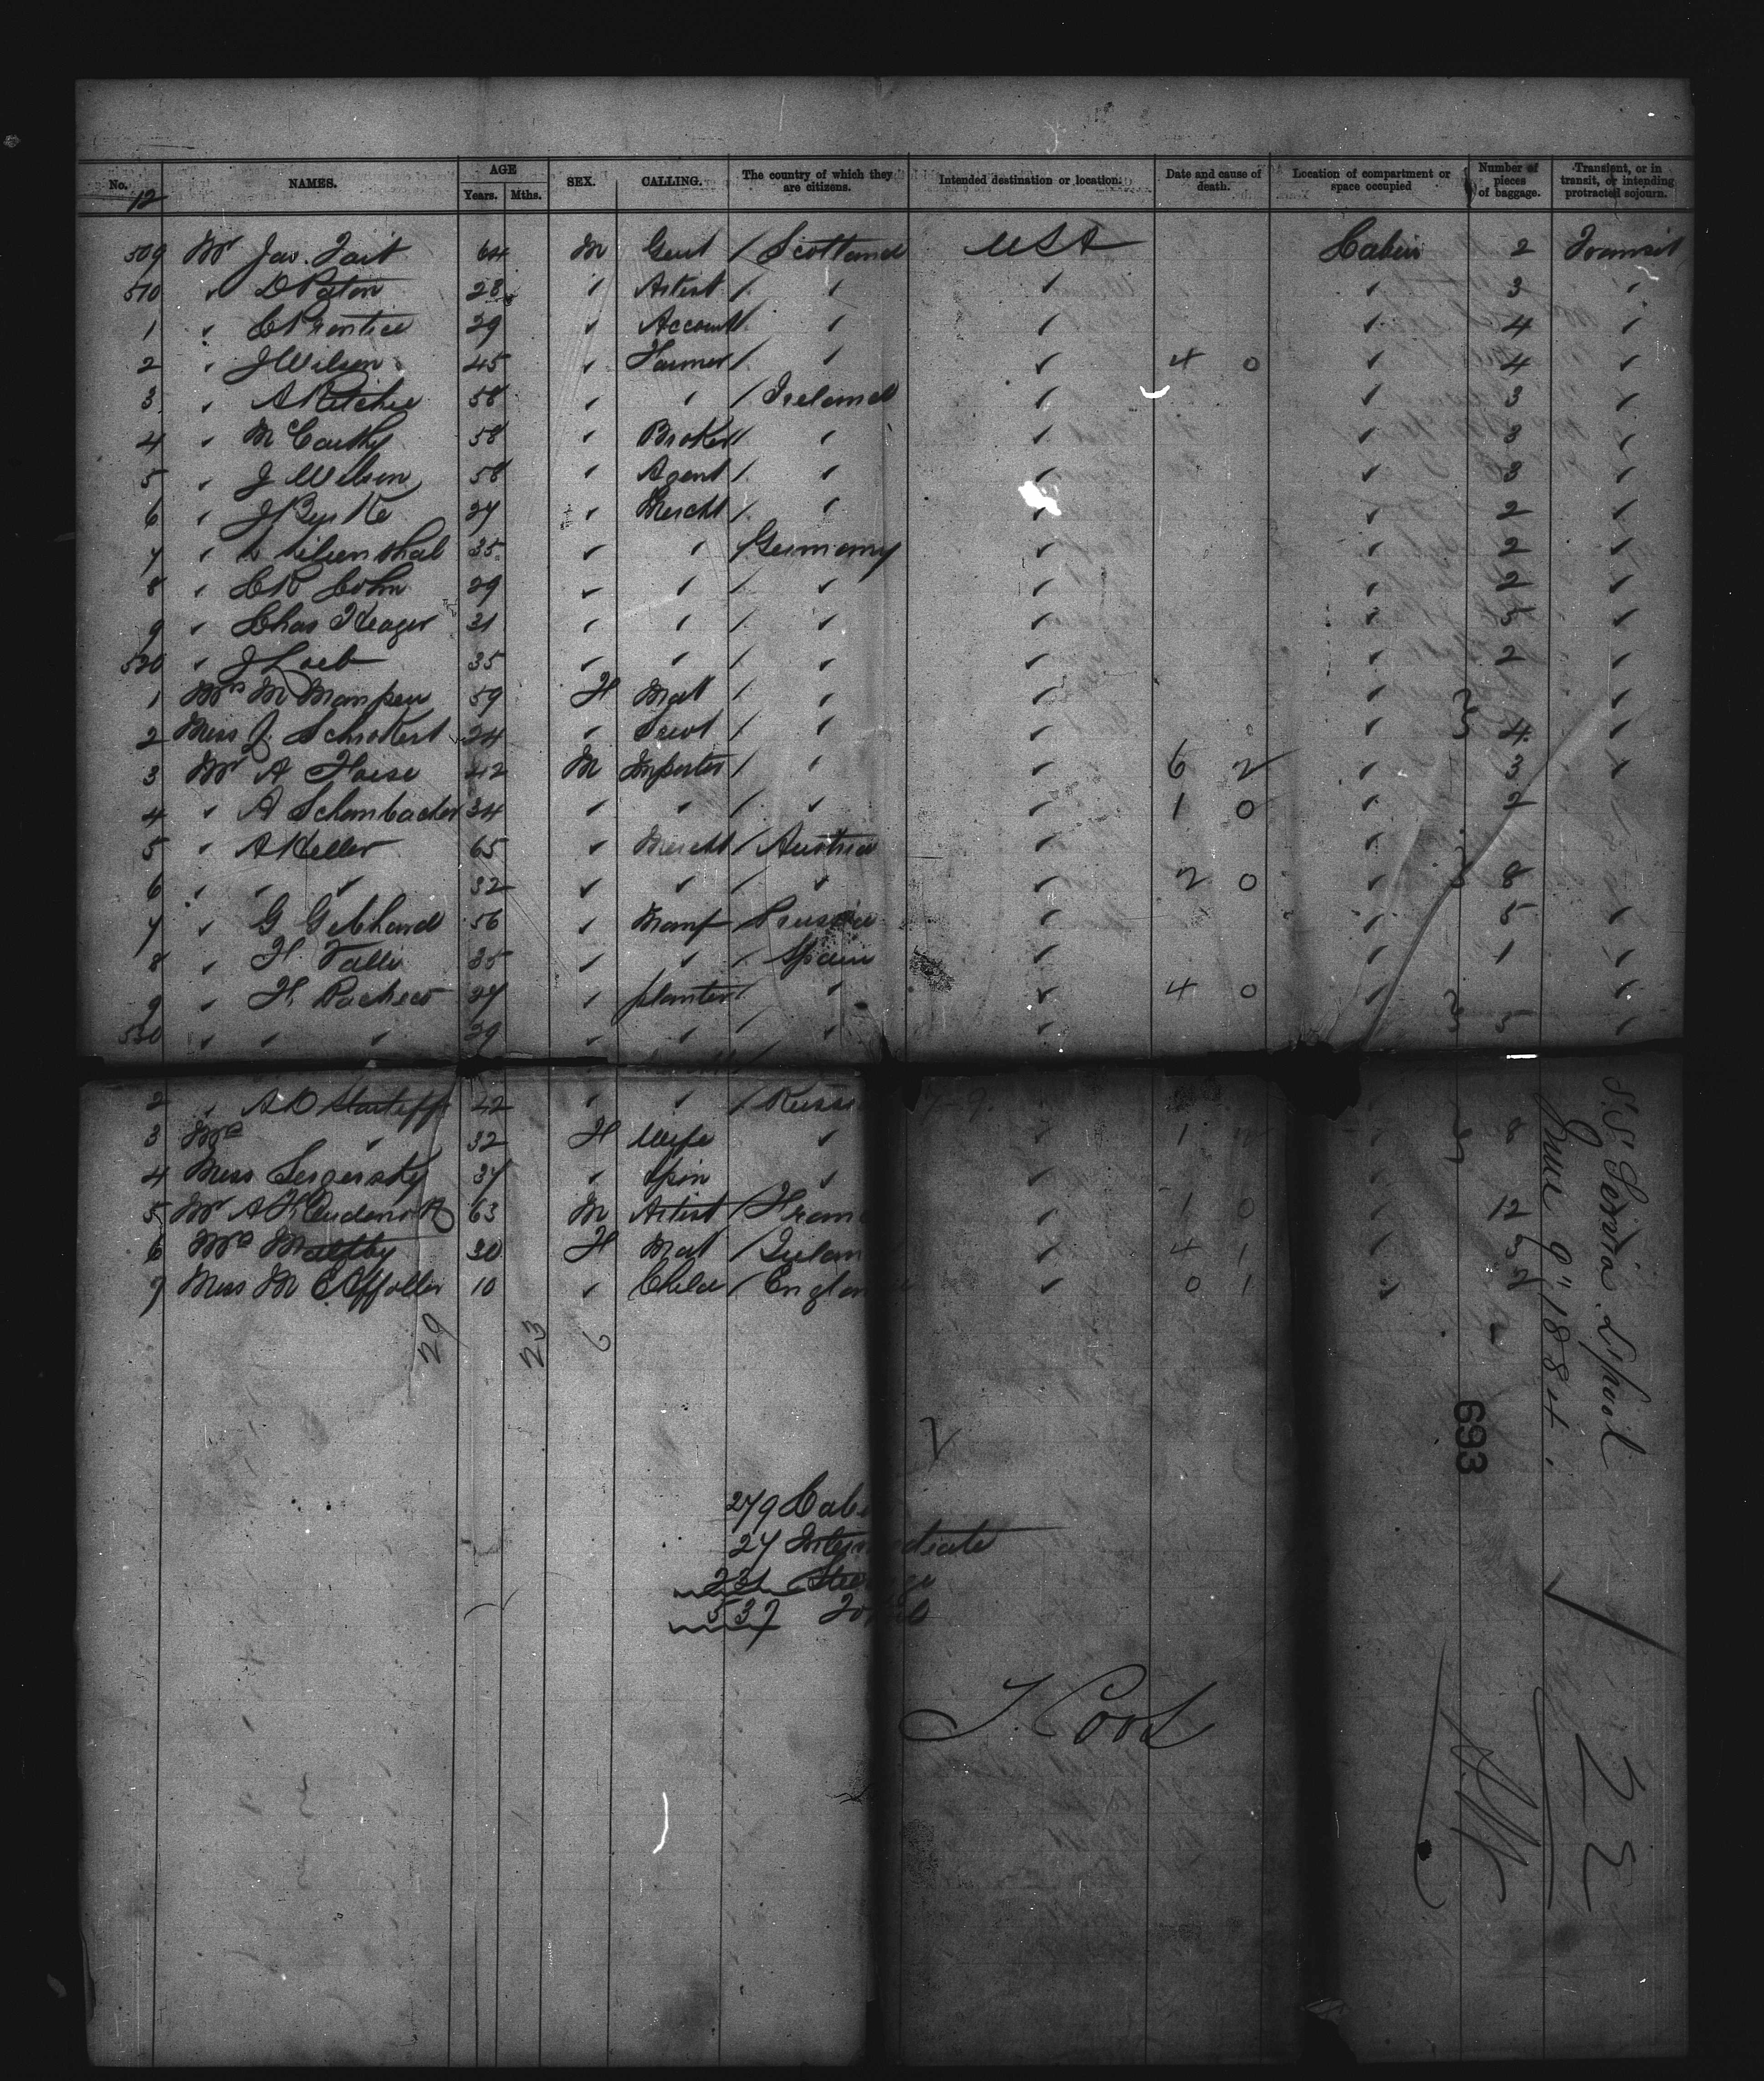 No. NAMES. AGE SEX. CALLING. The country of which they are citizens. Intended destination or location. Date and cause of death. Location of compartment or space occupied Number of pieces of baggage. Transient, or in transit, or intending protracted sojourn.
12 Years. Mths.
509 Mr Jas. Tait 64 M Gent / Scotland USA Cabin 2 Transit
510 " D Paton 28 " Artist / " " " 3 "
1 " C Prentice 29 " Account / " " " 4 "
2 " J Wilson 45 " Farmer / " " 4 0 " 4 "
3 " A Ritchie 58 " " / Ireland " " 3 "
4 " McCarthy 58 " Broker / " " " 3 "
5 " J Wilson 58 " Agent / " " " 3 "
6 " J Burke 27 " Mercht / " " " 2 "
7 " 35 " " / Germany " " 2 "
8 " C R Cohn 29 " " / " " " 2 "
9 " Chas Keager 31 " " / " " " 5 "
520 " J Loeb 35 " " / " " " 2 "
1 Mrs M Mampen 59 F Mat / " " " "
2 Miss J. 24 " Servt / " " " 4 "
3 Mr A 42 M Importer / " " 6 2 " 3 "
4 " A Schambacher 34 " " / " " 1 0 " 2
5 " A Keller 65 " Mercht / Austria " "
6 " " " 32 " " / " " 2 0 " 8
7 " G Gebhard 56 " Manf / Prussia " " 5 "
8 " H. Valle 35 " " / Spain " " 1 "
9 " H. Pacheco 37 " planter / " " 4 0 " "
530 " " " 29 " " / " " 5 "
2 " A D 42 " " / Russi
3 Mrs " 32 F Wife " " 1 " 8
4 Miss Sergersky 37 " Spin " "
5 Mr A 63 M Artist / Fran " 1 0 " 12
6 Mrs Maltby 30 F Mat / Irelan " 4 1 "
7 Miss M E Affolter 10 " Child / Englan " 0 1 "
29 23 6
279 Cabi
27 Intermediate
231 Steerage
537 Total
S.S. Servia. L'pool
June 9" 1884.
693